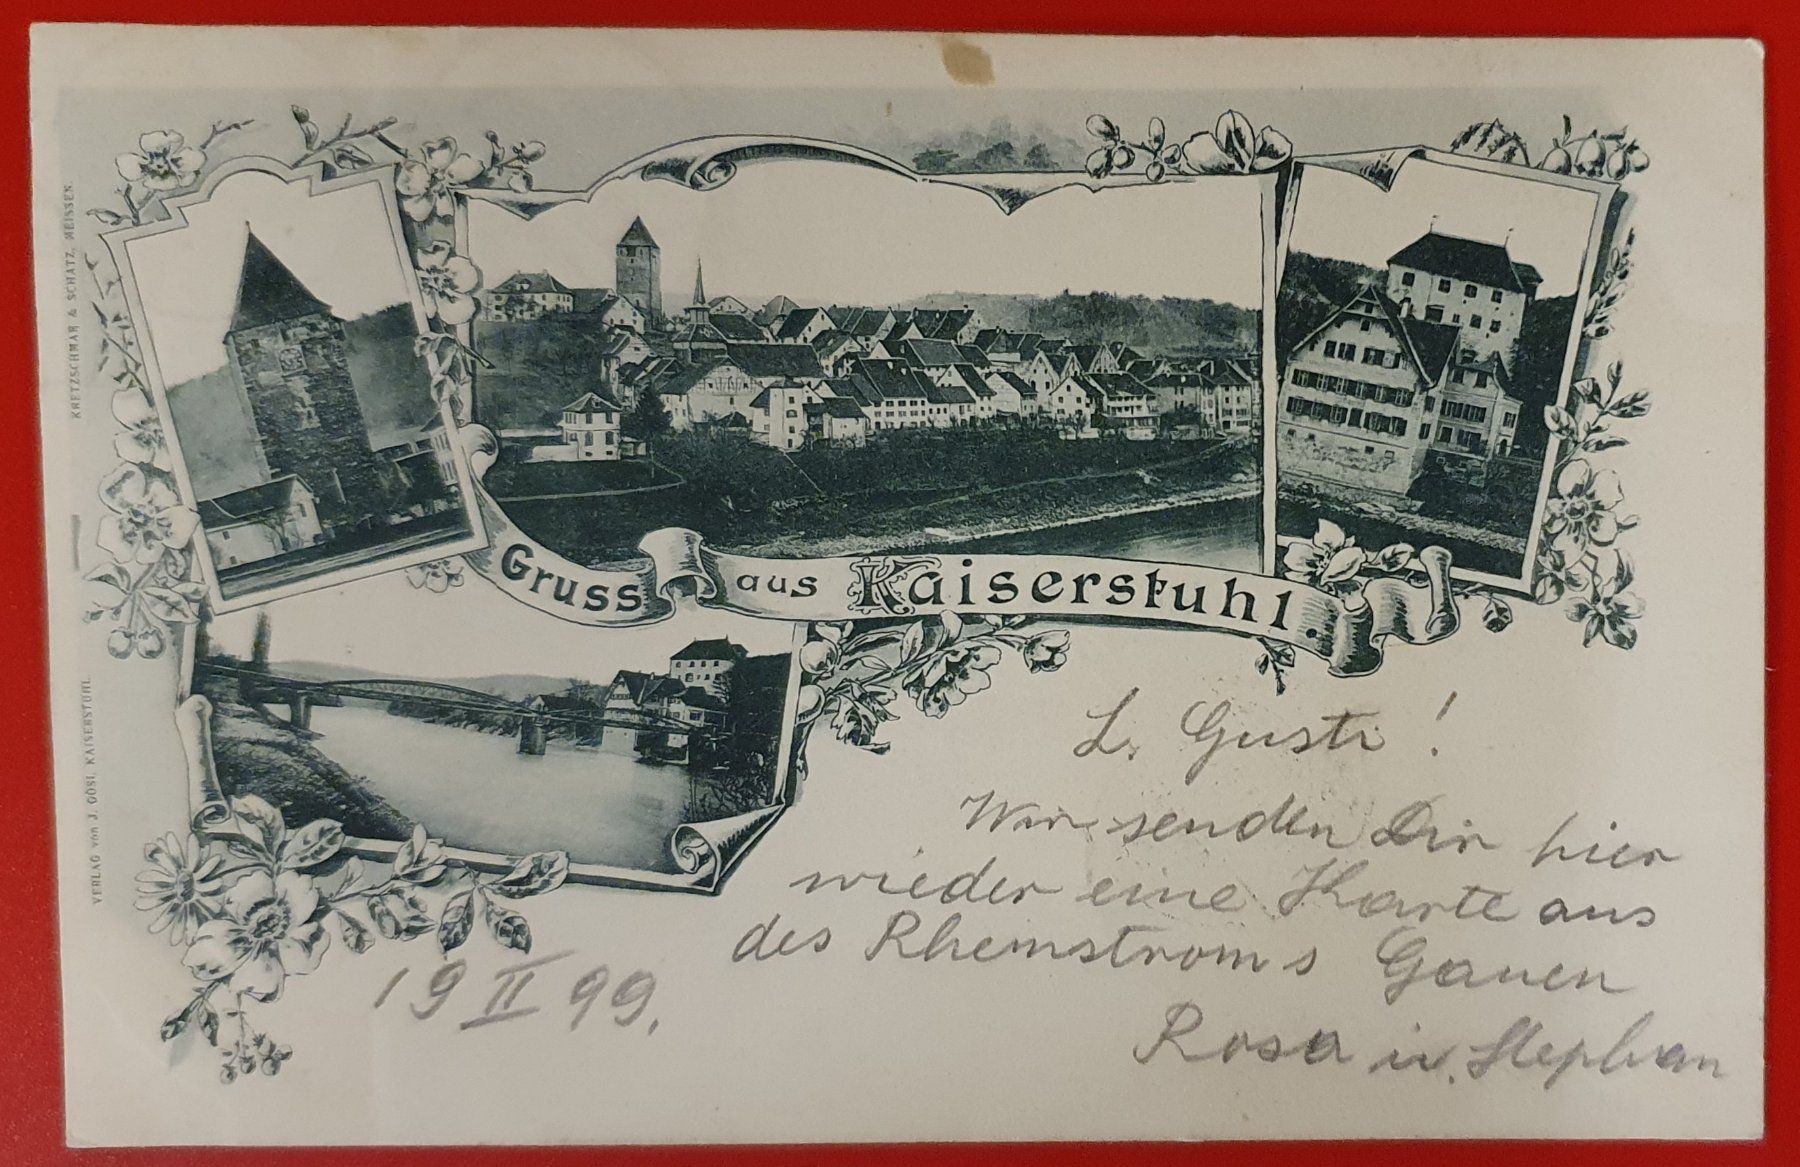 KRETZSCHMAR & SCHATZ, MEISSEN.
VERLAG von J. GÖSI, KAISERSTUHL.
Gruss aus Kaiserstuhl.
L. Gusti!
Wir senden Dir hier
wieder eine Karte aus
des Rheinstroms Gauen
Rosa u. Stephan
19 II 99.